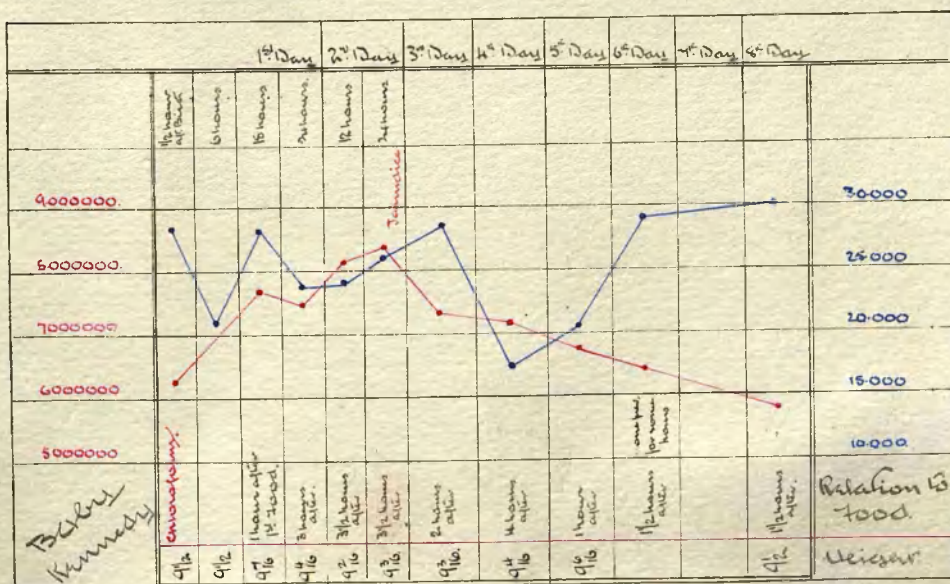 1st Day 2nd Day 3rd Day 4th Day 5th Day 6th Day 7th Day 8th Day
1/2 hour
6 hours
18 hours
24 hours
12 hours
24 hours
Jaundice
9000000.
8000000.
7000000
6000000
5000000
30.000
25.000
20.000
15.000
10.000
1 hour after
1st Food.
3 hours
after
3 1/2 hours
after
3 1/2 hours
after
2 hours
after
4 hours
after
1 hour
after
1 1/2 hours
after
1 1/2 hours
after.
for some
hours
Relation to
Food.
Baby
Kennedy
9 1/2
9 1/2
9 7/16
9 4/16
9 2/16
9 3/16
9 3/16.
9 4/16
9 6/16
9 1/2